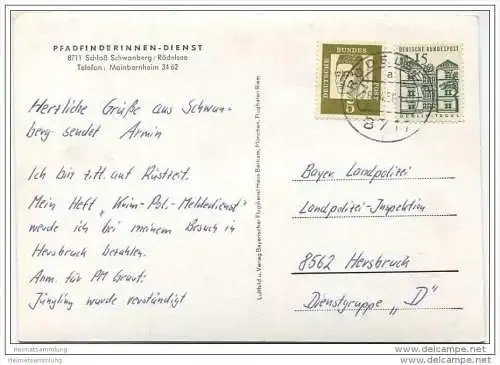 PFADFINDERINNEN-DIENST
8711 Schloß Schwanberg / Rödelsee
Telefon: Mainbernheim 3462
Herzliche Grüße aus Schwan-
berg sendet Armin
Ich bin z.Zt. auf Rüstzeit.
Mein Heft „Krim-Pol.-Meldedienst"
werde ich bei meinem Besuch in
Hersbruck bezahlen.
Anm. für PM Graut:
Jüngling wurde verständigt
Luftbild u. Verlag Bayerischer Flugdienst Hans Bertram, München, Flughafen Riem
DEUTSCHE
BUNDES
POST
5
15
DEUTSCHE BUNDESPOST
a
8711
Bayer. Landpolizei
Landpolizei-Inspektion
8562 Hersbruck
Dienstgruppe „D"
Heimatsammlung
Heimatsammlung.com